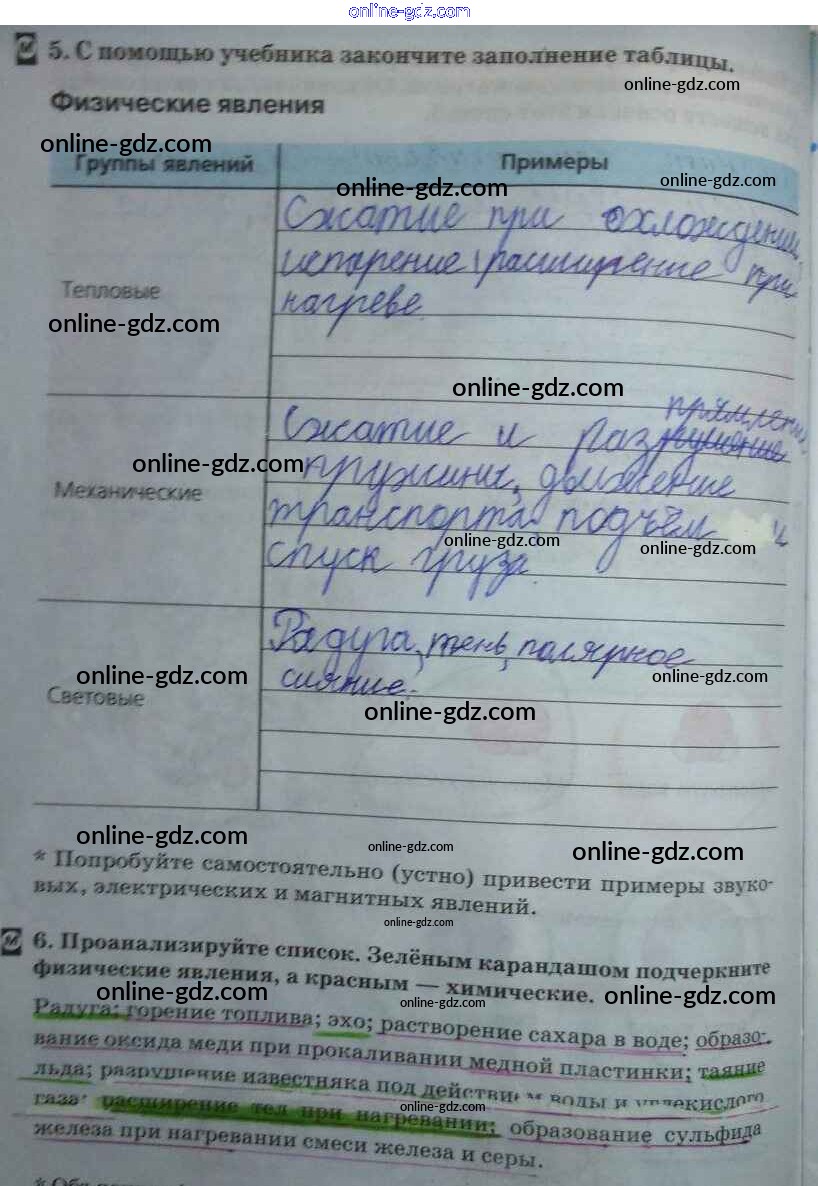 online-gdz.com
5. С помощью учебника закончите заполнение таблицы.
online-gdz.com
Физические явления
online-gdz.com
Группы явлений
Примеры
online-gdz.com
online-gdz.com
Сжатие при охлождении,
испарение, расширение при
Тепловые
нагреве.
online-gdz.com
online-gdz.com
прямление
Сжатие и раз
online-gdz.com
пружины, движение
Механические
транспорта, подъём и
online-gdz.com
online-gdz.com
спуск груза.
Радуга, тень, полярное
online-gdz.com
сияние.
online-gdz.com
Световые
online-gdz.com
online-gdz.com
online-gdz.com
online-gdz.com
* Попробуйте самостоятельно (устно) привести примеры звуко-
вых, электрических и магнитных явлений.
online-gdz.com
6. Проанализируйте список. Зелёным карандашом подчеркните
физические явления, а красным — химические.
online-gdz.com
online-gdz.com
online-gdz.com
Радуга; горение топлива; эхо; растворение сахара в воде; образо-
вание оксида меди при прокаливании медной пластинки; таяние
льда; разрушение известняка под действием воды и углекислого
газа; расширение тел при нагревании; образование сульфида
online-gdz.com
железа при нагревании смеси железа и серы.